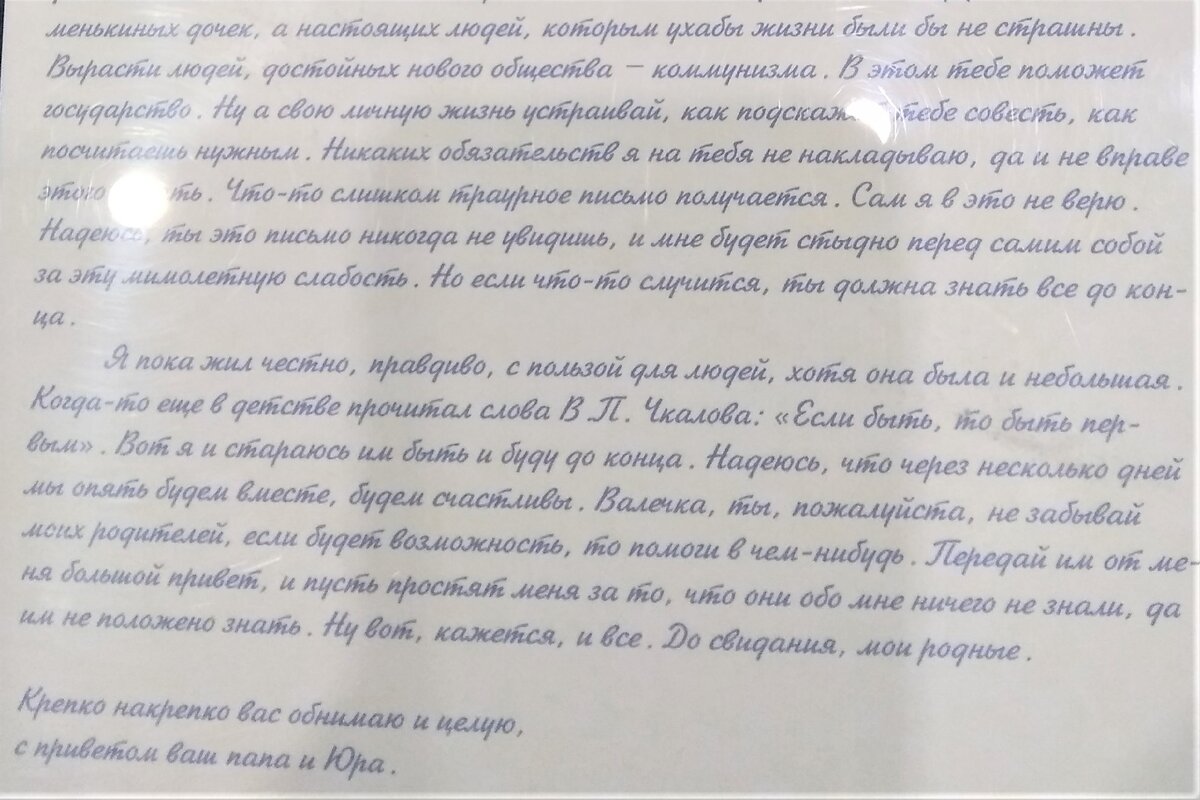 менькиных дочек, а настоящих людей, которым ухабы жизни были бы не страшны.
Вырасти людей, достойных нового общества – коммунизма. В этом тебе поможет
государство. Ну а свою личную жизнь устраивай, как тебе совесть, как
посчитаешь нужным. Никаких обязательств я на тебя не накладываю, да и не вправе
этого. Что-то слишком траурное письмо получается. Сам я в это не верю.
Надеюсь, ты это письмо никогда не увидишь, и мне будет стыдно перед самим собой
за эту мимолетную слабость. Но если что-то случится, ты должна знать все до кон-
ца.
Я пока жил честно, правдиво, с пользой для людей, хотя она была и небольшая.
Когда-то еще в детстве прочитал слова В.П. Чкалова: «Если быть, то быть пер-
вым». Вот я и стараюсь им быть и буду до конца. Надеюсь, что через несколько дней
мы опять будем вместе, будем счастливы. Валечка, ты, пожалуйста, не забывай
моих родителей, если будет возможность, то помоги в чем-нибудь. Передай им от ме-
ня большой привет, и пусть простят меня за то, что они обо мне ничего не знали, да
им не положено знать. Ну вот, кажется, и все. До свидания, мои родные.
Крепко накрепко вас обнимаю и целую,
с приветом ваш папа и Юра.